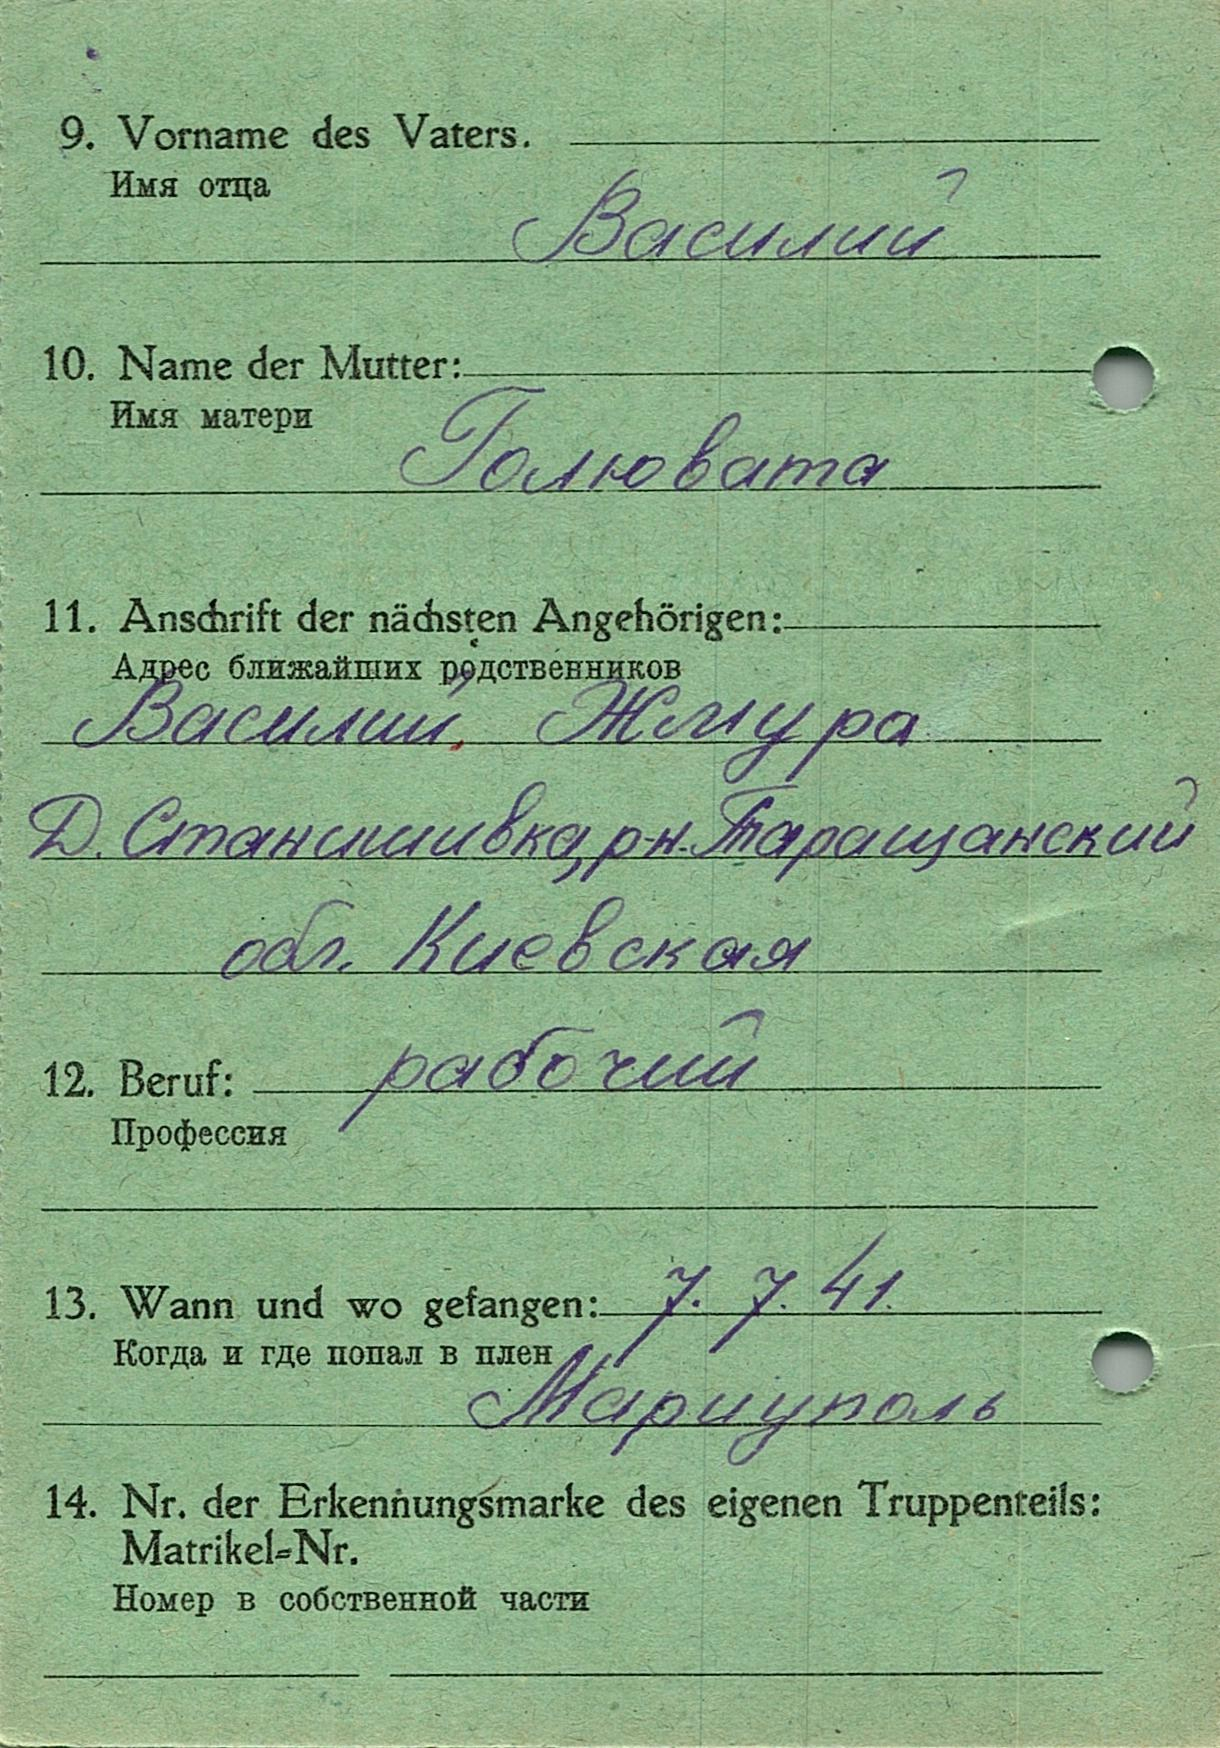 9. Vorname des Vaters.
Имя отца
Василий
10. Name der Mutter:
Имя матери
Голювата
11. Anschrift der nächsten Angehörigen:
Адрес ближайших родственников
Василий, Жмура
Д. Станишивка, р-н. Таращанский
обл. Киевская
12. Beruf: рабочий
Профессия
13. Wann und wo gefangen: 7. 7. 41.
Когда и где попал в плен
Мариуполь
14. Nr. der Erkennungsmarke des eigenen Truppenteils:
Matrikel-Nr.
Номер в собственной части